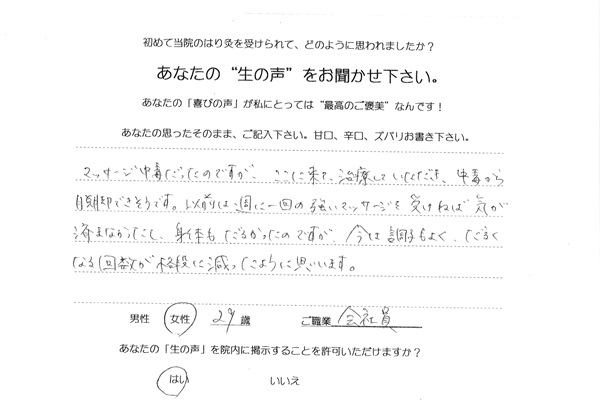 初めて当院のはり灸を受けられて、どのように思われましたか？
あなたの“生の声”をお聞かせ下さい。
あなたの「喜びの声」が私にとっては“最高のご褒美”なんです！
あなたの思ったそのまま、ご記入下さい。甘口、辛口、ズバリお書き下さい。
マッサージ中毒だったのですが、ここに来て、治療していただき、中毒から
脱却できそうです。以前は週に一回の強いマッサージを受けねば気が
済まなかったし、身体もだるかったのですが、今は調子もよく、だるく
なる回数が格段に減ったように思います。
男性 女性 29歳 ご職業 会社員
あなたの「生の声」を院内に掲示することを許可いただけますか？
はい いいえ